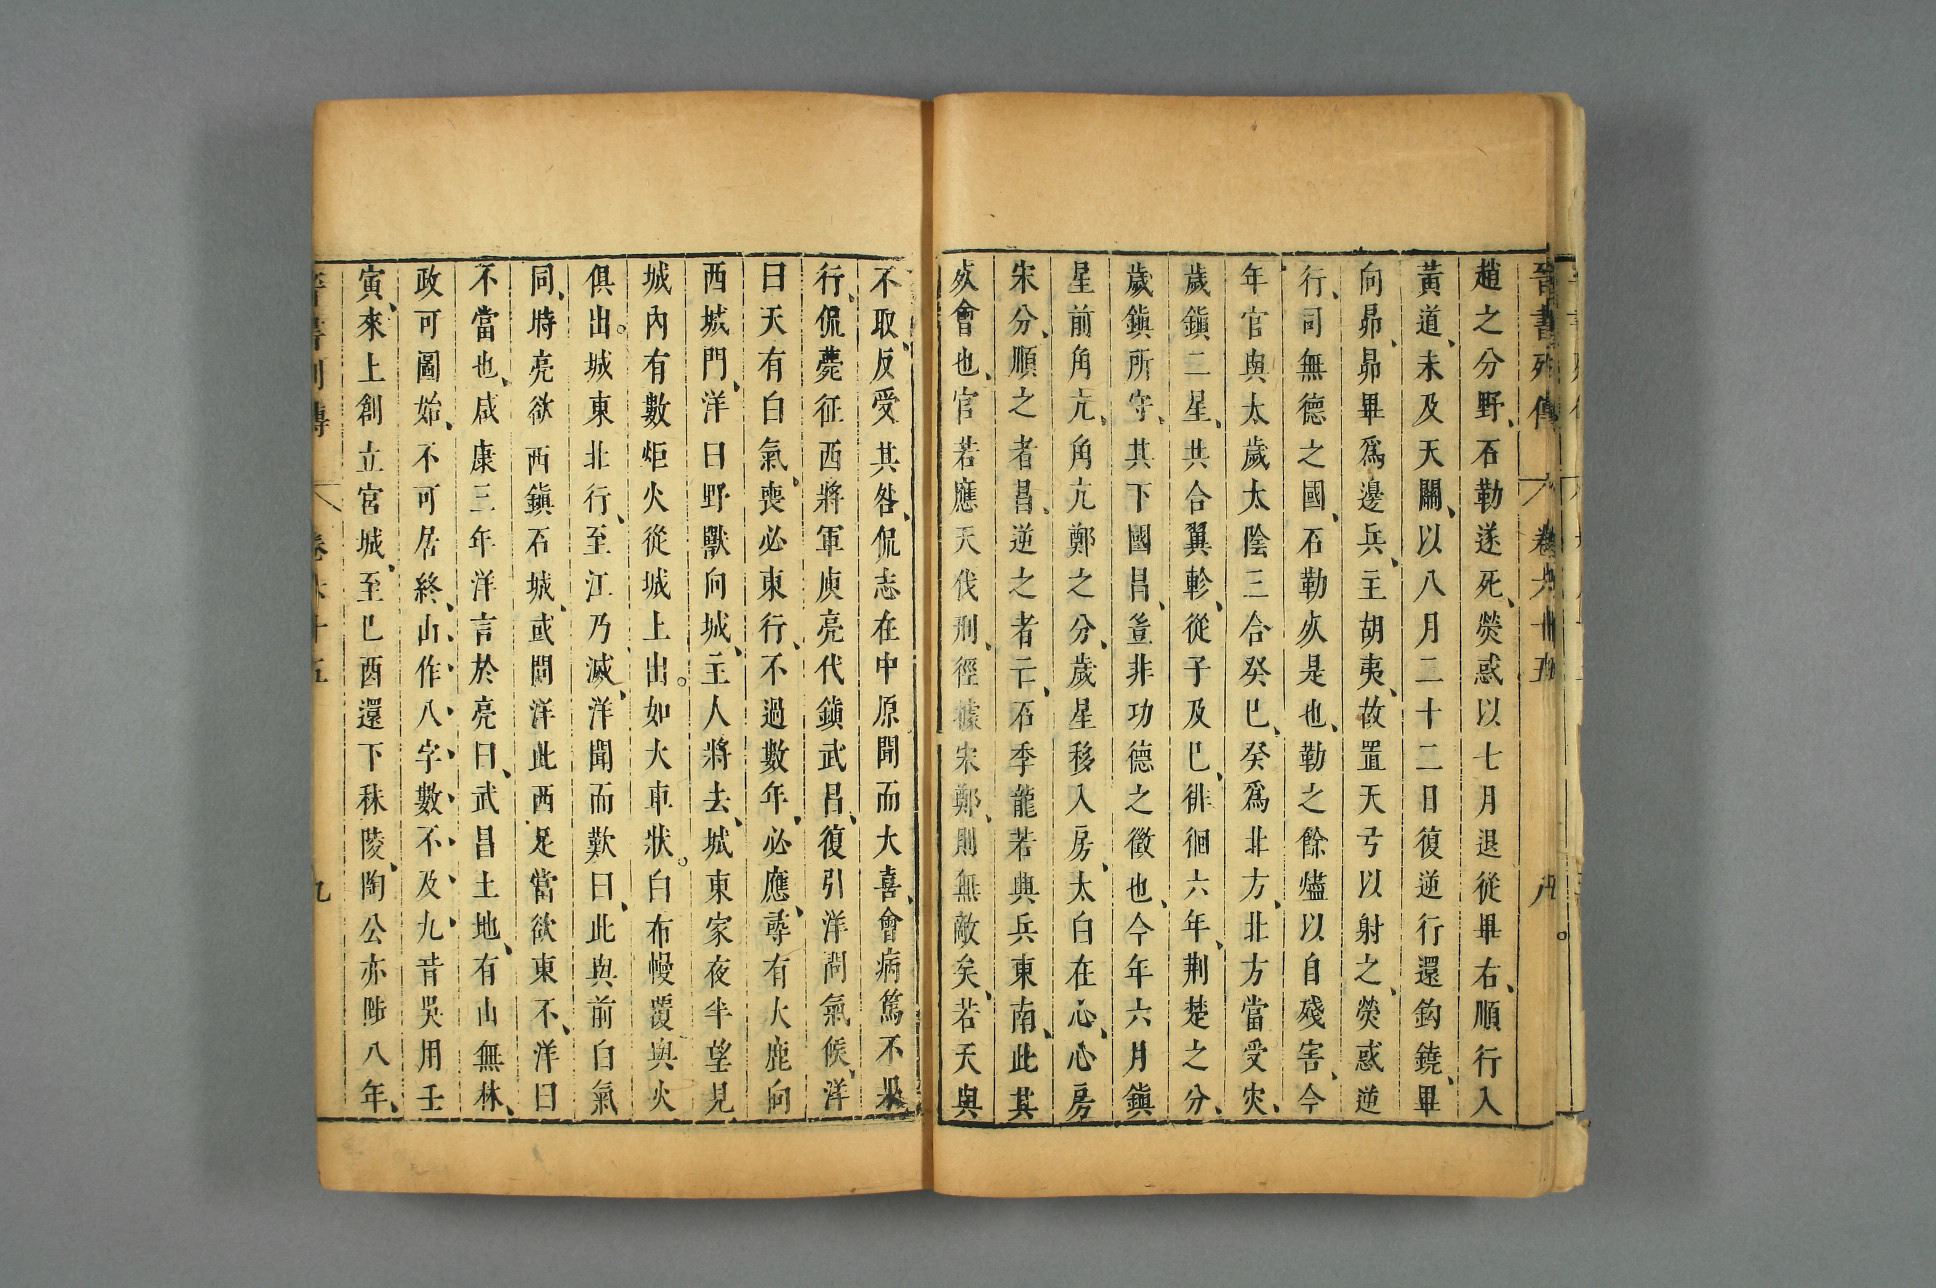 晉書列傳 卷六十五 八
趙之分野石勒遂死熒惑以七月退從畢右順行入
黃道未及天關以八月二十二日復逆行還鈎鐃畢
向昴昴畢爲邊兵主胡夷故置天弓以射之熒惑逆
行司無德之國石勒灾是也勒之餘燼以自殘害今
年官與太歲太陰三合癸巳癸爲北方北方當受灾
歲鎭二星共合翼軫從子及巳徘徊六年荆楚之分
歲鎭所守其下國昌豈非功德之徵也今年六月鎭
星前角亢角亢鄭之分歲星移入房太白在心心房
宋分順之者昌逆之者亡石季龍若興兵東南此其
灾會也官若應天伐刑徑據宋鄭則無敵矣若天與
不取反受其咎侃志在中原聞而大喜會病篤不果
行侃薨征西將軍庾亮代鎭武昌復引洋問氣候洋
曰天有白氣喪必東行不過數年必應尋有大鹿向
西城門洋曰野獸向城主人將去城東家夜半望見
城內有數炬火從城上出如大車狀白布幔覆與火
俱出城東北行至江乃滅洋聞而歎曰此與前白氣
同時亮欲西鎭石城或問洋此西足當欲東不洋曰
不當也咸康三年洋言於亮曰武昌土地有山無林
政可圖始不可居終山作八字數不及九昔吳用壬
寅來上創立宮城至巳酉還下秣陵陶公亦涉八年
晉書列傳 卷六十五 九